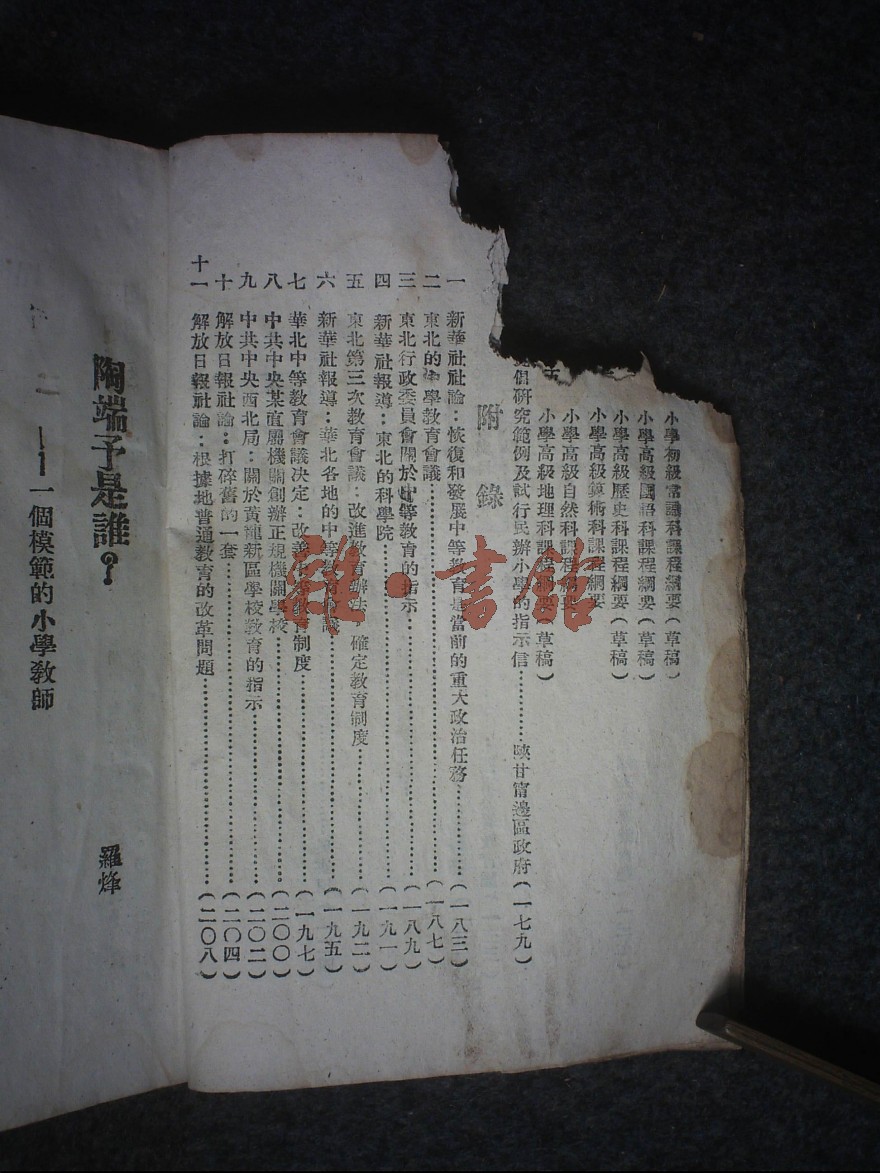 小學初級常識科課程綱要(草稿)
小學高級國語科課程綱要(草稿)
小學高級歷史科課程綱要(草稿)
小學高級算術科課程綱要
小學高級自然科課程綱要(草稿)
小學高級地理科課程綱要(草稿)
個研究範例及試行民辦小學的指示信…………陝甘甯邊區政府(一七九)
附錄
一 新華社社論:恢復和發展中等教育是當前的重大政治任務…………(一八三)
二 東北的中學教育會議…………(一八七)
三 東北行政委員會關於中等教育的指示…………(一八九)
四 新華社報導:東北的科學院…………(一九一)
五 東北第三次教育會議:改進教育辦法 確定教育制度…………(一九二)
六 新華社報導:華北各地的中等教育會議…………(一九五)
七 華北中等教育會議決定:改善中等教育制度…………(一九七)
八 中共中央某直屬機關創辦正規機關學校…………(二〇〇)
九 中共中央西北局:關於黃龍新區學校教育的指示…………(二〇二)
十 解放日報社論:打碎舊的一套…………(二〇四)
十一 解放日報社論:根據地普通教育的改革問題…………(二〇八)
陶端予是誰?
羅烽
——一個模範的小學教師
雜·書館